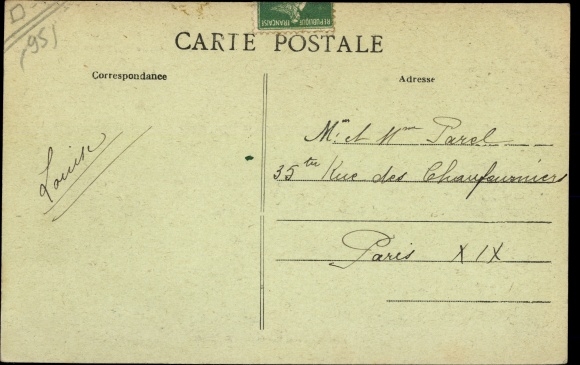 D
95
REPUBLIQUE FRANÇAISE
CARTE POSTALE
Correspondance
Adresse
Louise
Mr et Mme Parel
35 ter Rue des Chaufourniers
Paris XIX